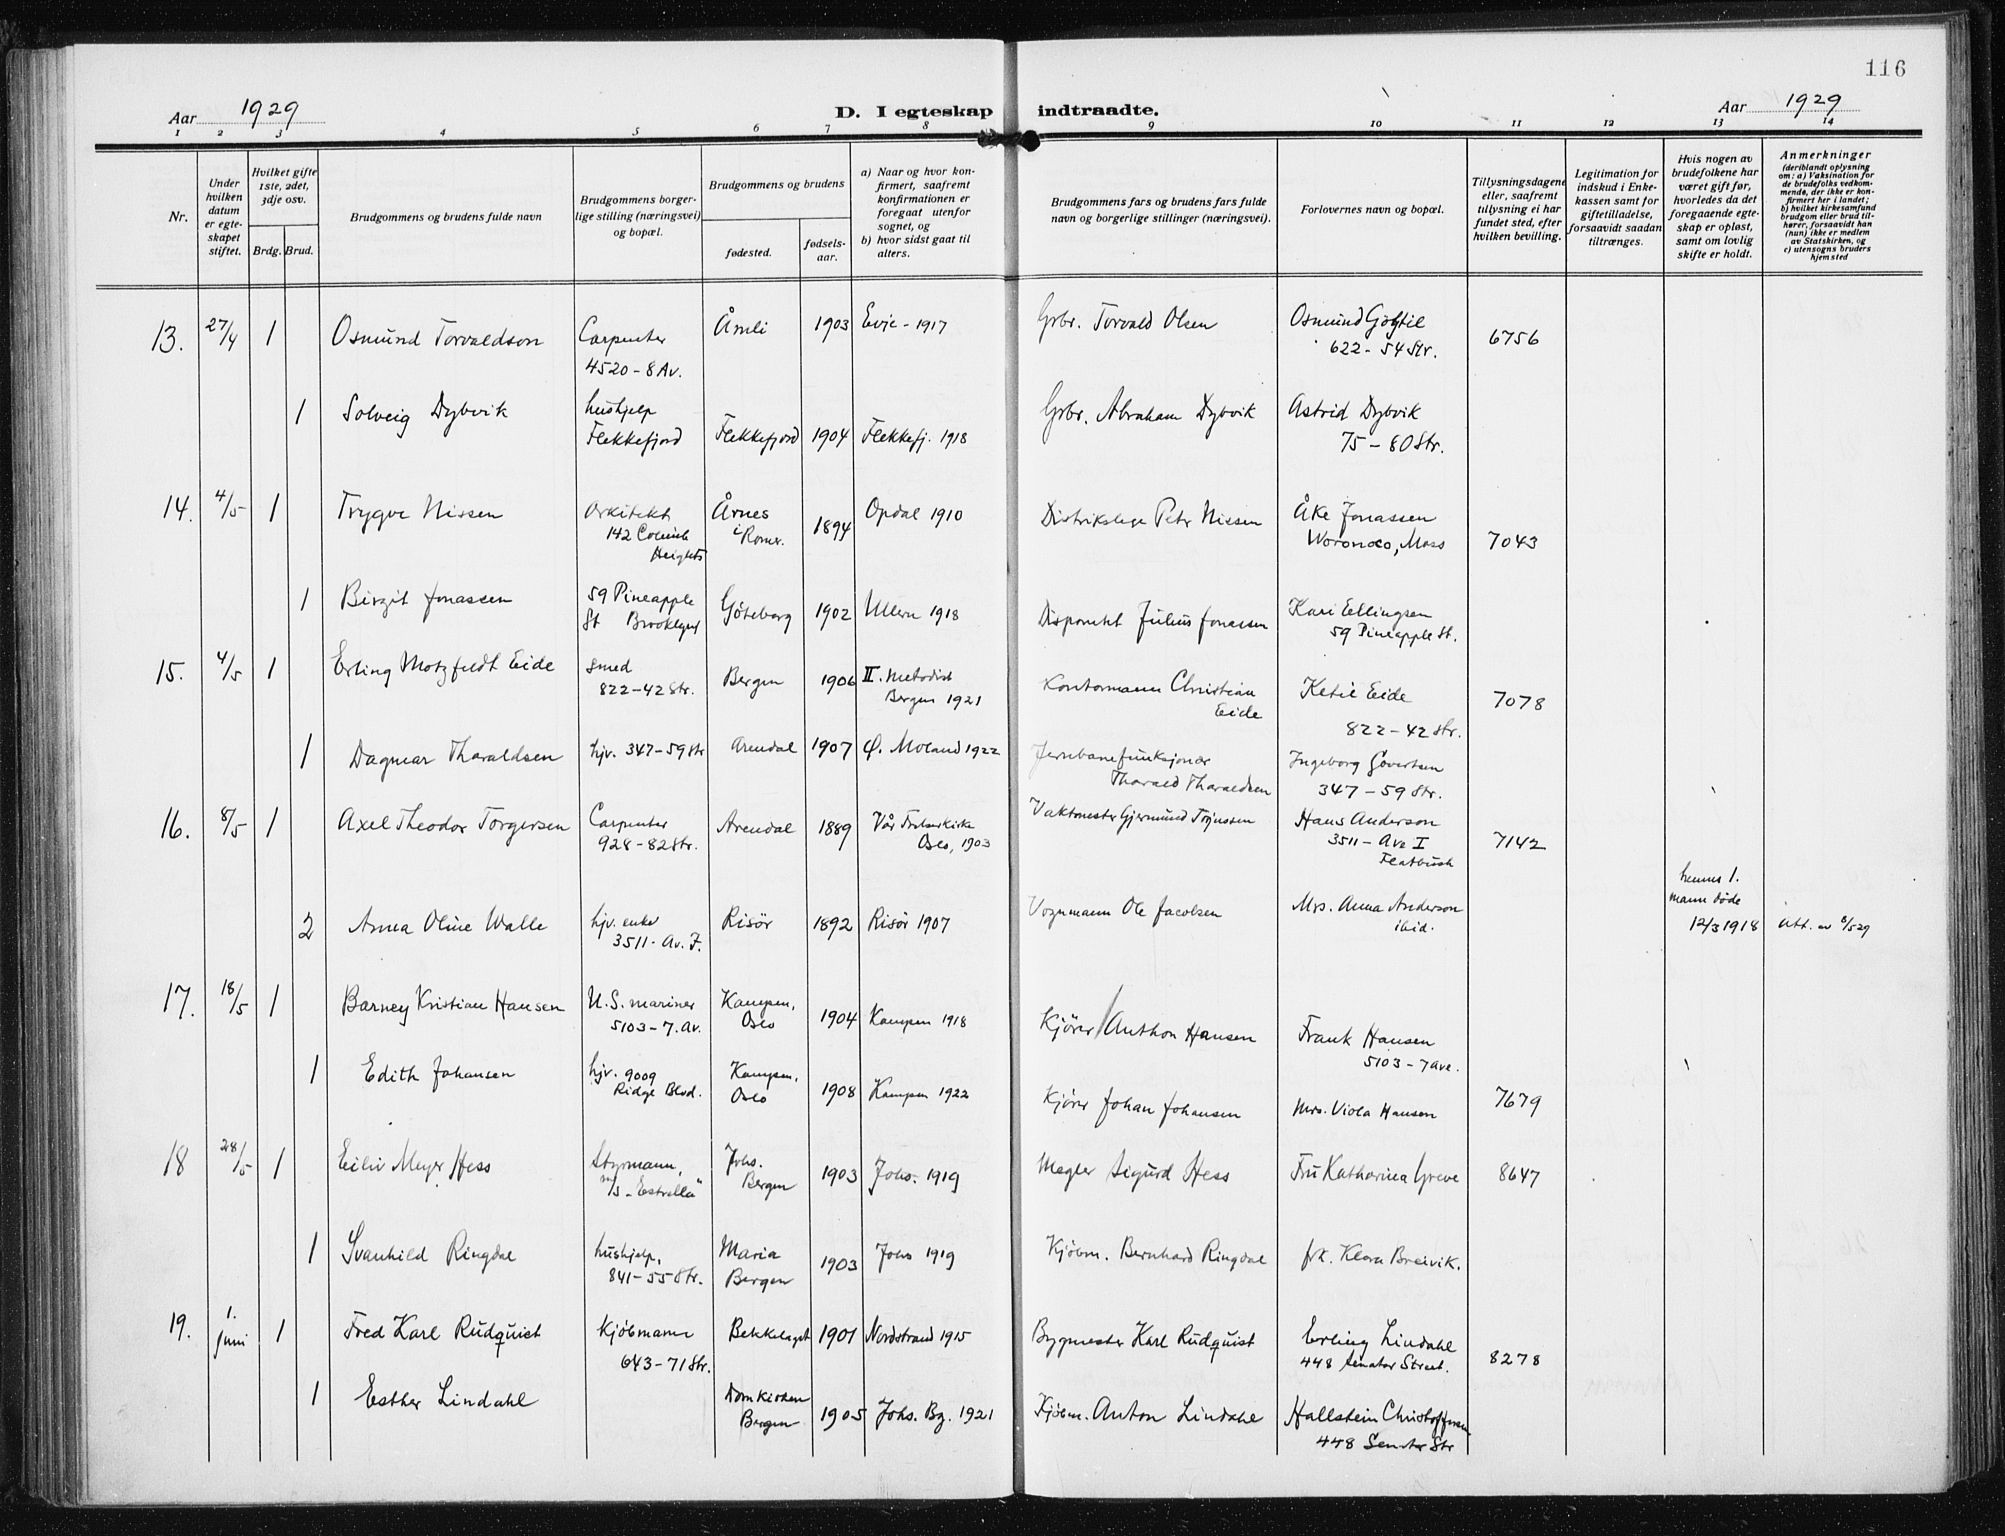 116
Aar 1929
D. I egteskap indtraadte.
Aar 1929
1 2 3 4 5 6 7 8 9 10 11 12 13 14
Nr.
Under hvilken datum er egteskapet stiftet.
Hvilket gifte 1ste, 2det, 3dje osv.
Brdg. Brud.
Brudgommens og brudens fulde navn
Brudgommens borgerlige stilling (næringsvei) og bopæl.
Brudgommens og brudens
fødested.
fødselsaar.
a) Naar og hvor konfirmert, saafremt konfirmationen er foregaat utenfor sognet, og
b) hvor sidst gaat til alters.
Brudgommens fars og brudens fars fulde navn og borgerlige stillinger (næringsvei).
Forlovernes navn og bopæl.
Tillysningsdagene eller, saafremt tillysning ei har fundet sted, efter hvilken bevilling.
Legitimation for indskud i Enkekassen samt for giftetilladelse, forsaavidt saadan tiltrænges.
Hvis nogen av brudefolkene har været gift før, hvorledes da det foregaaende egteskap er opløst, samt om lovlig skifte er holdt.
Anmerkninger
(deriblandt oplysning om: a) Vaksination for de brudefolks vedkommende, der ikke er konfirmert her i landet;
b) hvilket kirkesamfund brudgom eller brud tilhører, forsaavidt han (hun) ikke er medlem av Statskirken, og
c) utensogns bruders hjemsted
13. 27/4 1 Osmund Torvaldson Carpenter 4520-8 Av. Åmli 1903 Evje - 1917 Grbr. Torvald Olsen Osmund 622 - 54 Str. 6756
1 Solveig Dybvik hushjelp Flekkefjord Flekkefjord 1904 Flekkefj. 1918 Grbr. Abraham Dybvik Astrid Dybvik 75 - 80 Str.
14. 4/5 1 Trygve Nissen Arkitekt 142 Columb Heights Årnes i Romr. 1894 Opdal 1910 Distriktslege Petr Nissen Åke Jonassen Woronoco, Mass 7043
1 Birgit Jonassen 59 Pineapple St Brooklyn Göteborg 1902 Ullern 1918 Disponent Julius Jonassen Kari Ellingsen 59 Pineapple St.
15. 4/5 1 Erling Motzfeldt Eide Smed 822-42 Str. Bergen 1906 II. Metodist Bergen 1921 Kontormann Christian Eide Ketil Eide 822-42 Str. 7078
1 Dagmar Tharaldsen hjv. 347-59 Str Arendal 1907 Ø. Moland 1922 Jernbanefunksjonær Tharald Tharaldsen Ingeborg Govertsen 347 - 59 Str.
16. 8/5 1 Axel Theodor Torgersen Carpenter 928-82 Str. Arendal 1889 Vår Frelserkirke Oslo, 1903 Vaktmester Gjermund Hans Anderson 3511 - Ave I Flatbush 7142
2 Anna Oline Walle hjv. enke 3511. Av. I. Risör 1892 Risör 1907 Vognmann Ole Jacobsen Mrs. Anna Anderson ibid. hennes 1. mann döde 12/3 1918 Att. av 8/5 29
17. 18/5 1 Barney Kristian Hansen U.S. mariner 5103-7. Av. Kampen, Oslo 1904 Kampen 1918 Kjörer Anthon Hansen Frank Hansen 5103 - 7 Ave.
1 Edith Johansen hjv. 9009 Ridge Blvd. Kampen, Oslo 1908 Kampen 1922 Kjörer Johan Johansen Mrs. Viola Hansen 7679
18 28/5 1 Eiliv Meyer Hess Styrmann, m/s "Estrella" Johs. Bergen 1903 Johs. 1919 Megler Sigurd Hess Fru Katharina Greve 8647
1 Svanhild Ringdal hushjelp, 841-55 Str. Maria Bergen 1903 Johs 1919 Kjöbm. Bernhard Ringdal frk. Klara Breivik.
19. 1. Juni 1 Fred Karl Rudquist Kjöbmann 643-71 Str. Bekkelaget 1901 Nordstrand 1915 Bygmester Karl Rudquist Erling Lindahl 448 Senator Street. 8278
1 Esther Lindahl Domkirken Bergen 1905 Johs. Bg. 1921 Kjöbm. Anton Lindahl Hallstein Christoffersen 448 Senator Str